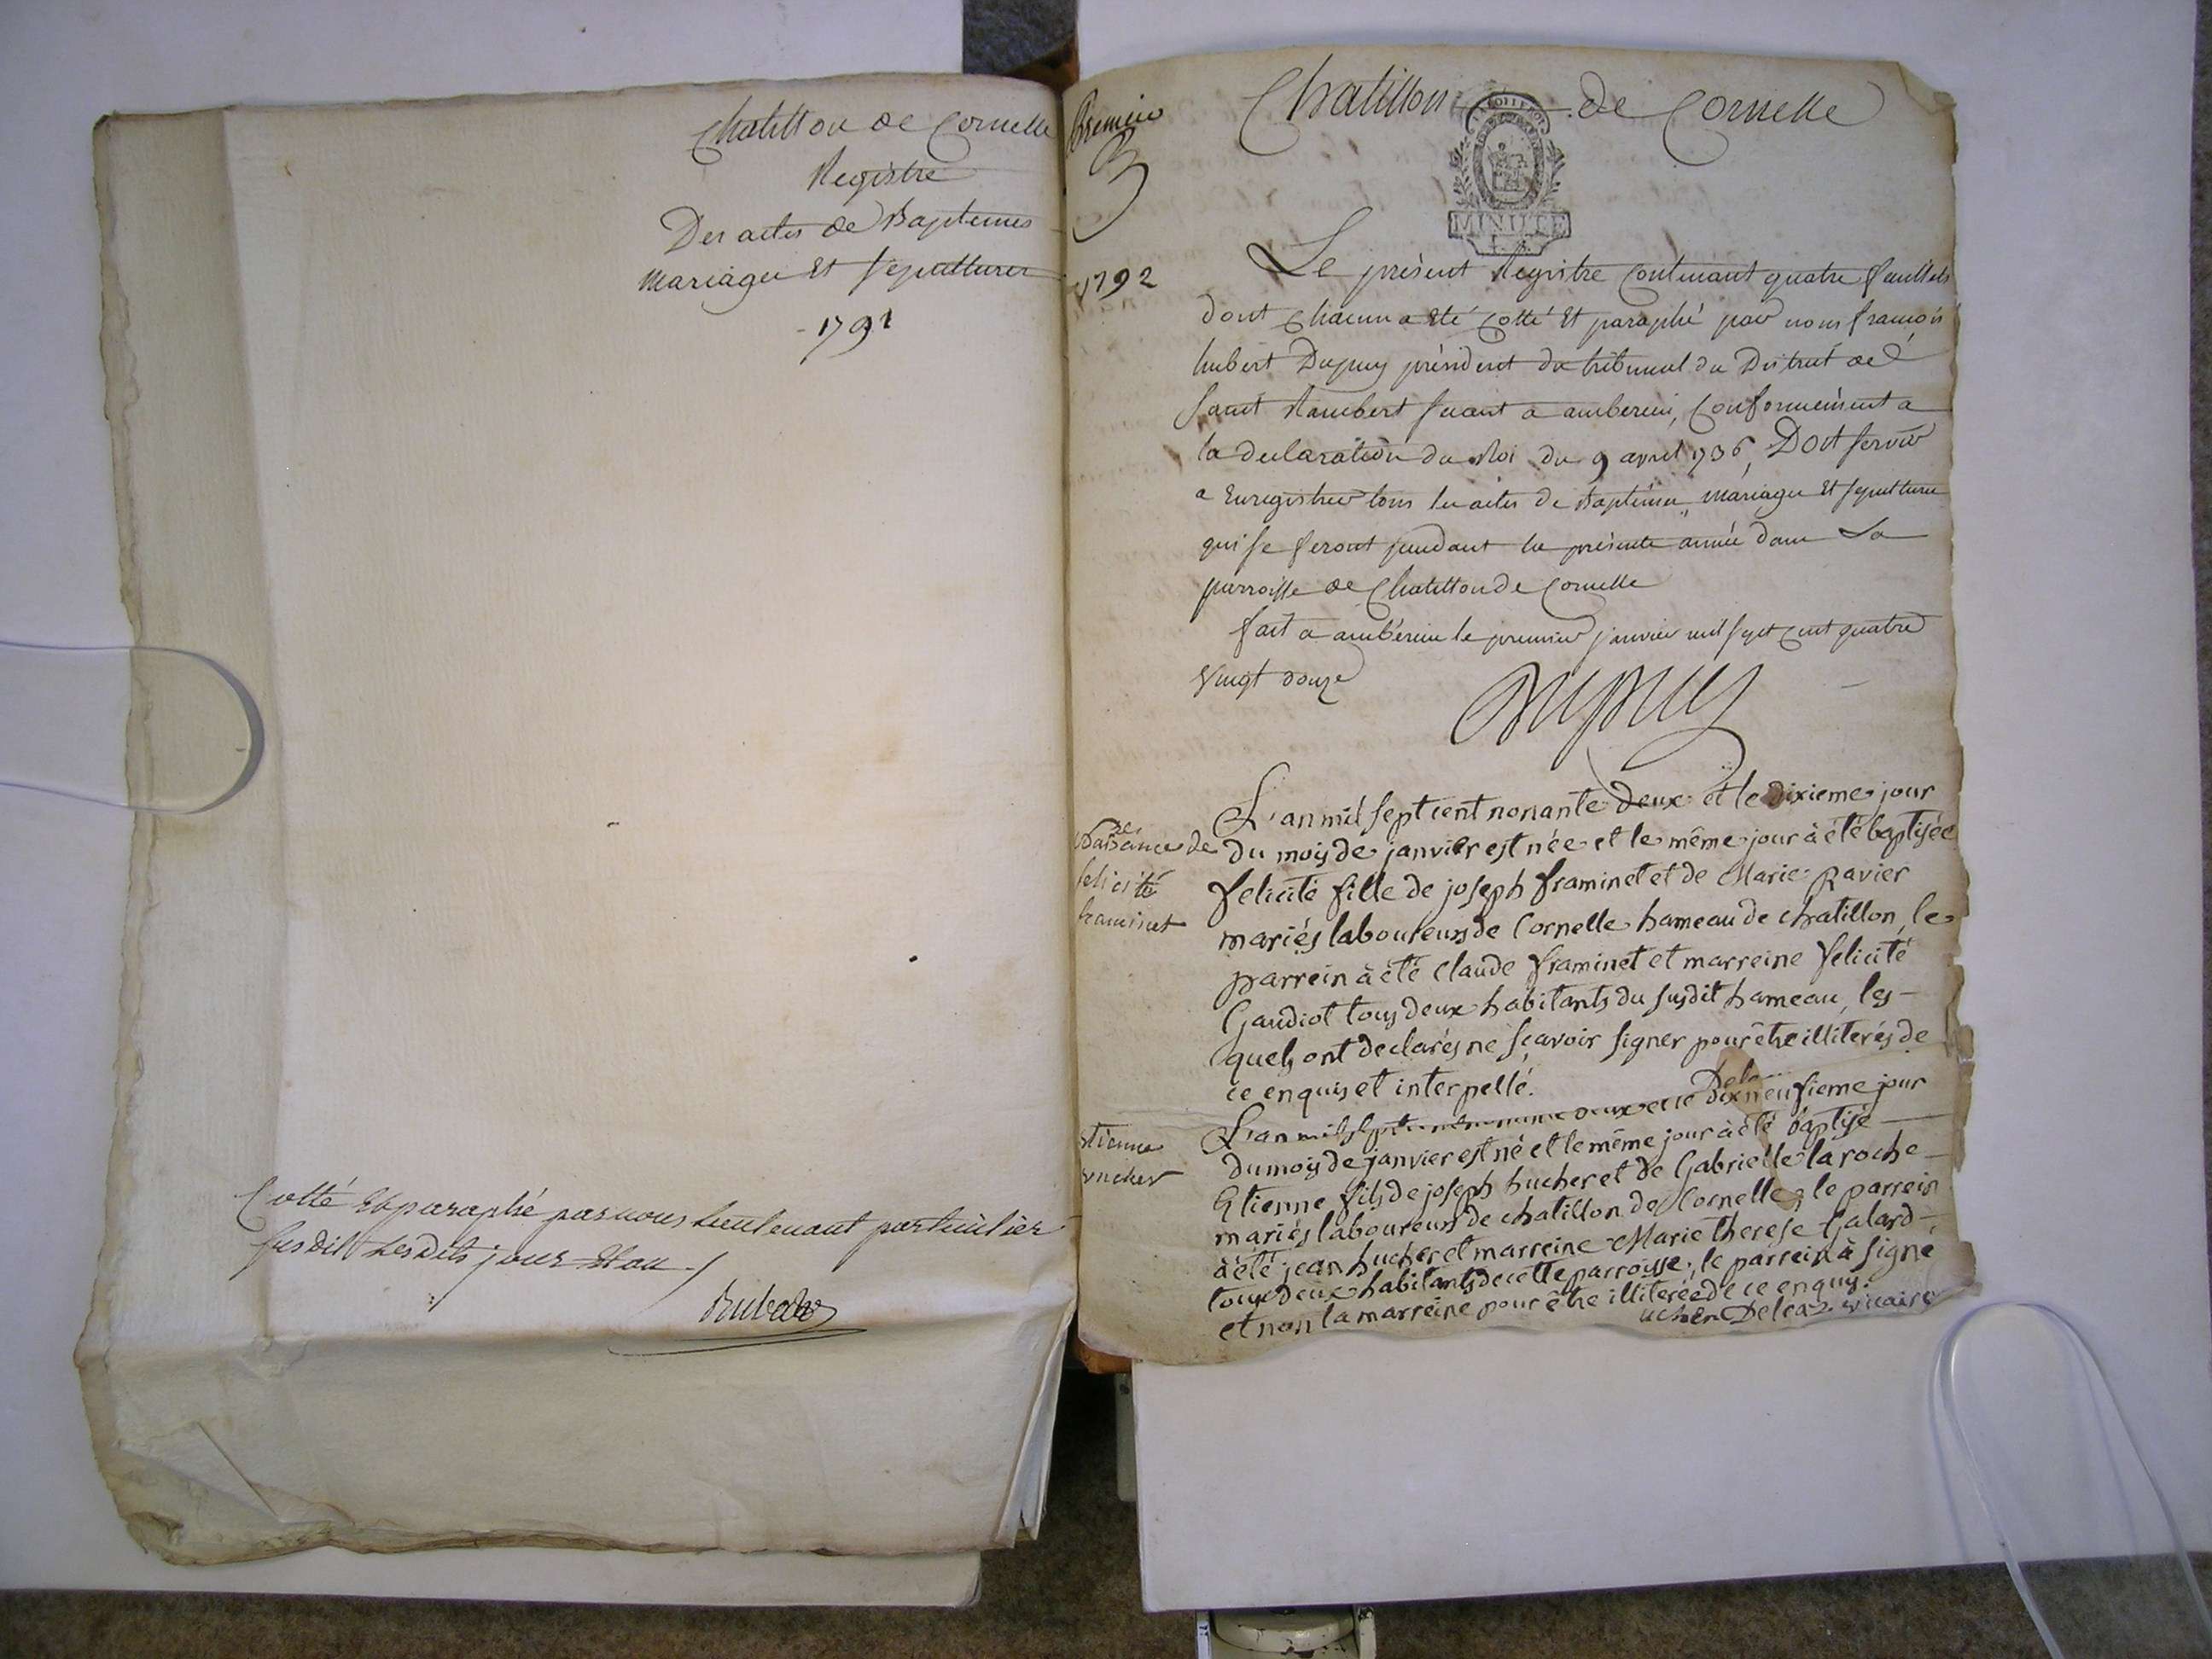 Chatillon de Cornelle
Registre
Des actes de Baptemes
Mariages Et sepultures
1791
Cotté Et paraphé par nous Lieutenant particulier
susdit Lesdits jour Et an
Premier
Chatillon de Cornelle
MINUTE
1792
Le présent Registre Contenant quatre feuillets
dont chacun a Eté Cotté Et paraphé par nous françois
hubert Dupuy président du tribunal du District de
Saint Rambert séant a amberieu, Conformément a
la declaration du Roi du 9 avril 1736, Doit servir
a Enregistrer tous les actes de Baptêmes, mariages Et sepultures
qui se feront pendant la présente année dans La
parroisse de Chatillon de Cornelle
fait a amberieu le premier janvier mil sept cent quatre
vingt douze
Dupuy
L'an mil sept cent nonante deux et le dixieme jour
du mois de janvier est née et le même jour à été baptisée
felicité fille de joseph framinet et de Marie Ravier
mariés laboureurs de Cornelle hameau de chatillon, le
parrein à été Claude framinet et marreine felicité
Gaudiot tous deux habitants du susdit hameau, les-
quels ont declarés ne sçavoir signer pour être illiterés de
ce enquis et interpellé.
Naissance de
felicité
framinet
L'an mil sept cent nonante deux et le Dixneufieme jour
du mois de janvier est né et le même jour à été baptisé
Etienne fils de joseph hucher et de Gabrielle laroche
mariés laboureurs de chatillon de Cornelle, le parrein
à été jean hucher et marreine Marie therese Galard,
tous deux habitants de cette parroisse, le parrein à signé
et non la marreine pour être illiterée de ce enquis.
ucher Deleaz vicaire
etienne
hucher